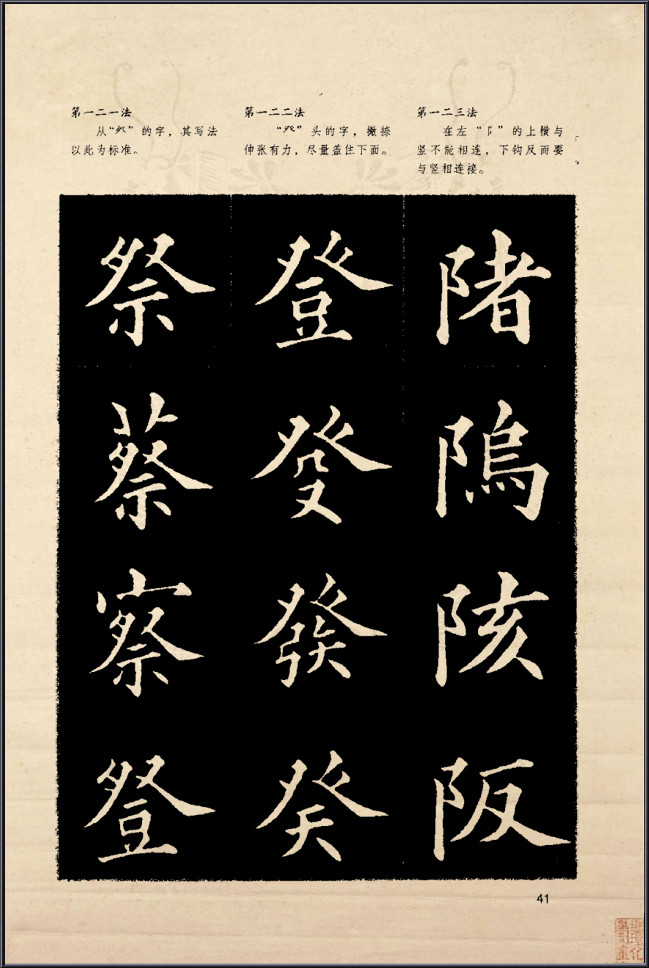 第一二一法
从“癶”的字，其写法
以此为标准。
祭
蔡
察
豋
第一二二法
“癶”头的字，撇捺
伸张有力，尽量盖住下面。
登
癹
發
癸
第一二三法
在左“阝”的上横与
竖不能相连，下钩反而要
与竖相连接。
陼
隖
陔
阪
41